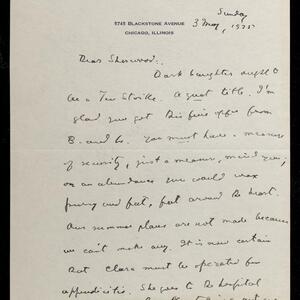 5745 BLACKSTONE AVENUE
CHICAGO, ILLINOIS
Sunday
3 May, 1925
Dear Sherwood:
Dark Laughter ought to
be a Best Seller. A great title. I'm
glad you got this fine offer from
B. and L. You must have a measure
of security, just a measure, mind you,
on an abundance you would wax
pursy and fat, fat around the heart.
Our summer plans are not made because
we can't make any. It is now certain
that Clara must be operated for
appendicitis. She goes to the hospital